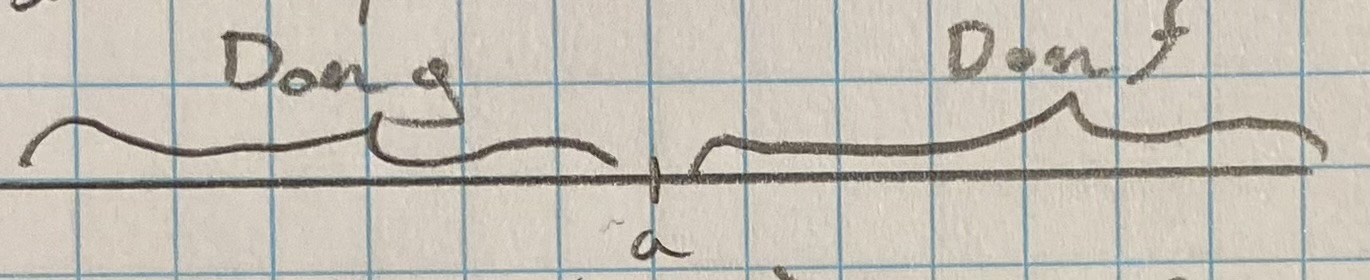 Dom g Dom f
a